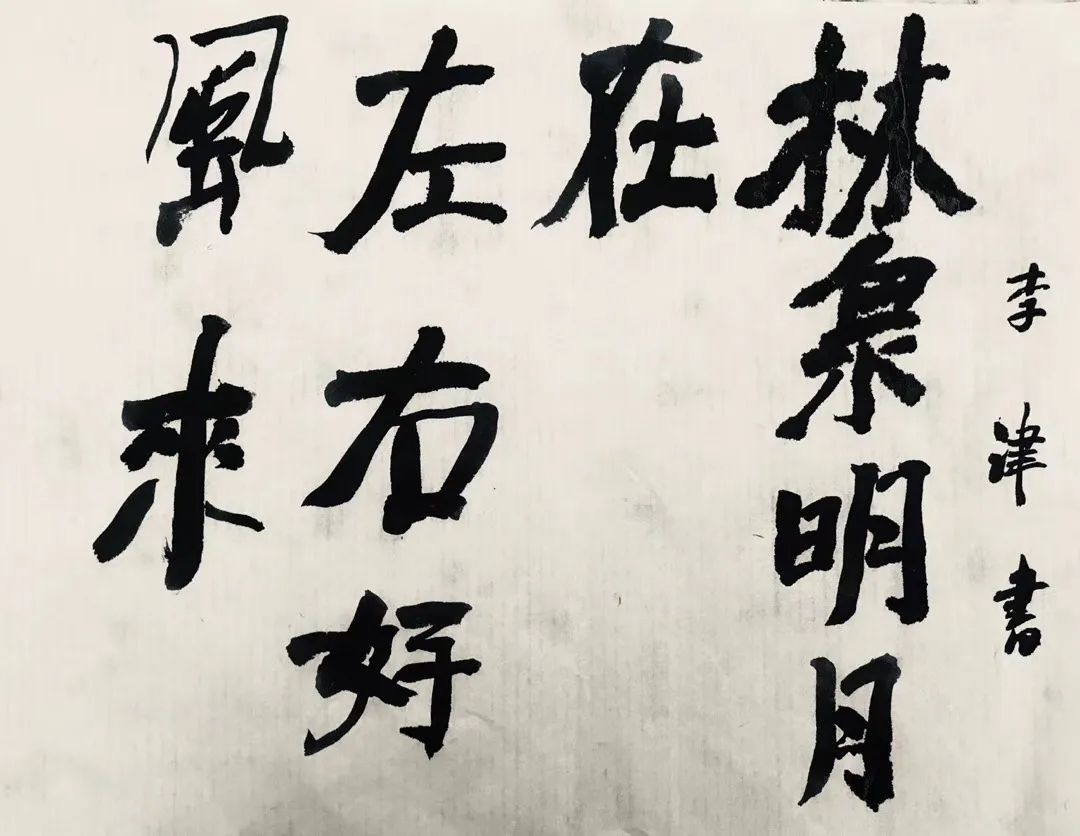 李津書
林泉明月
在
左右好
風來